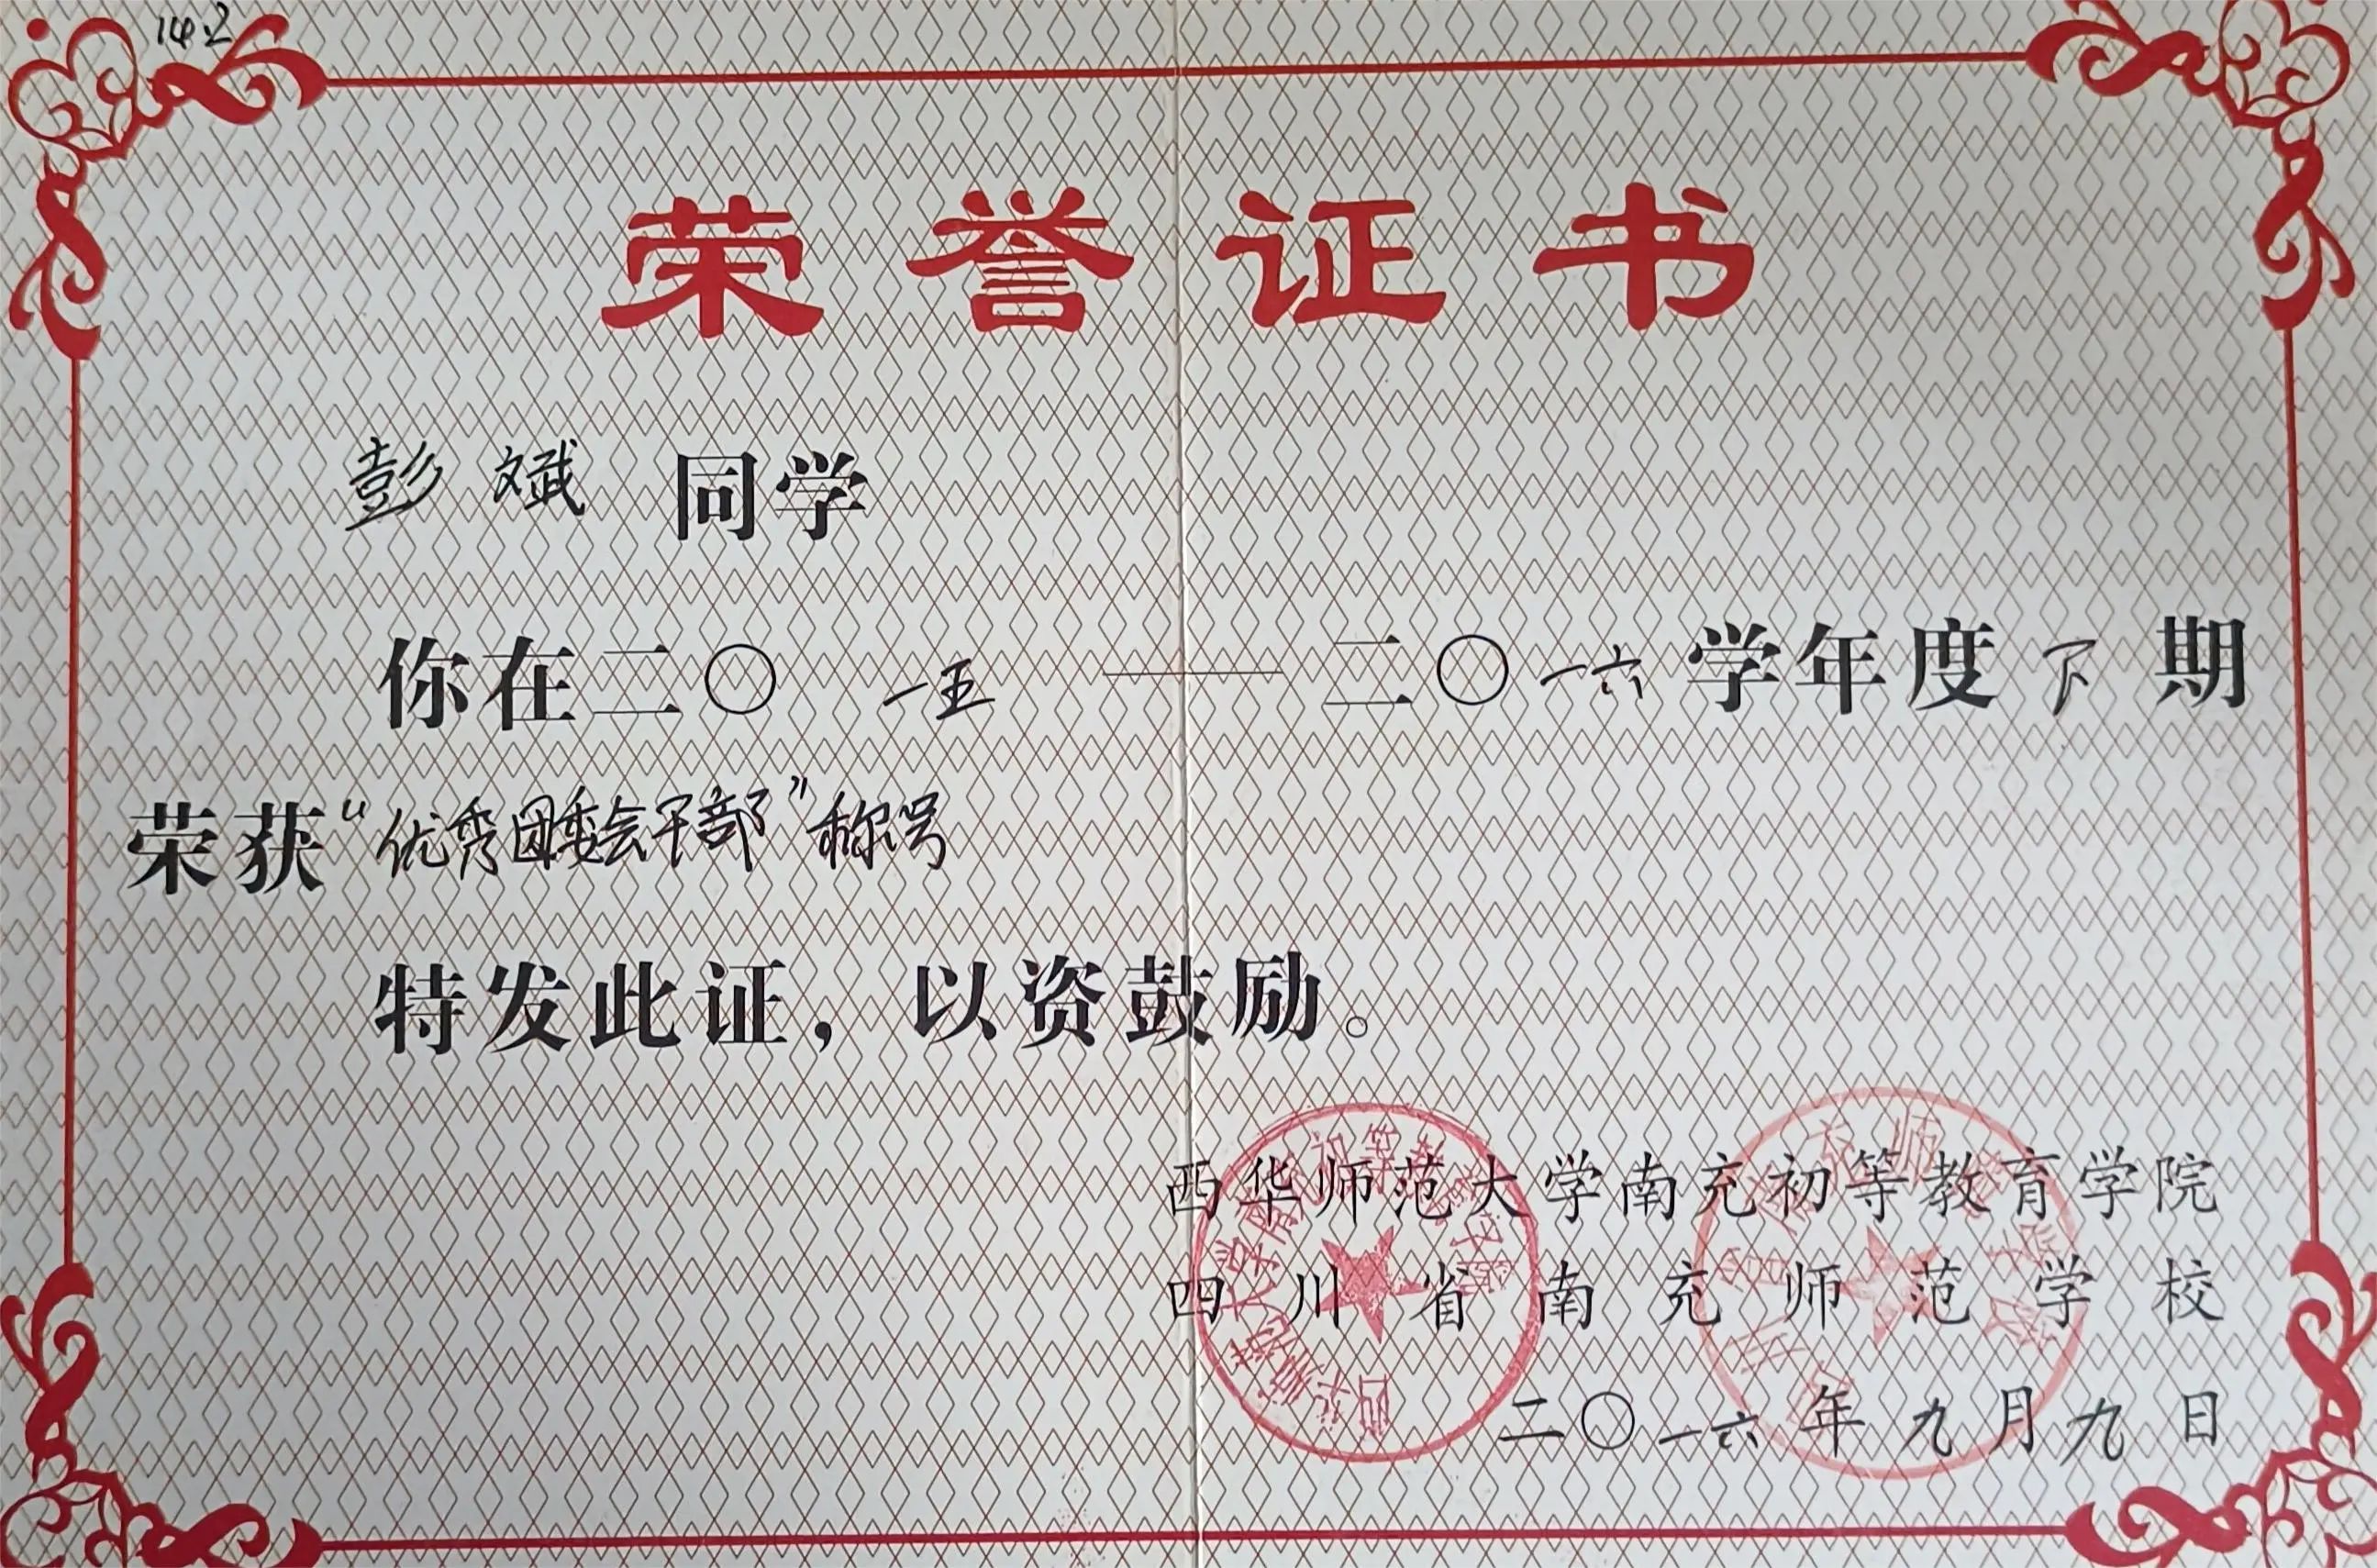 14.2
荣誉证书
彭斌 同学
你在二〇一五——二〇一六学年度下期
荣获“优秀团委会干部”称号
特发此证，以资鼓励。
西华师范大学南充初等教育学院
四川省南充师范学校
二〇一六年九月九日